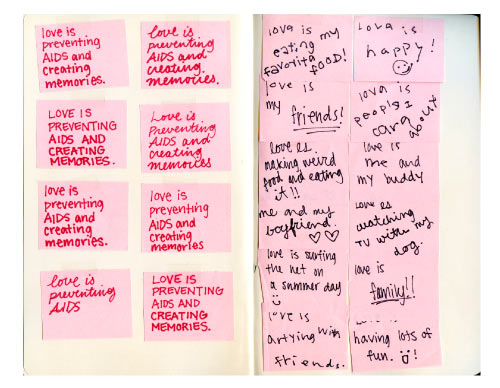 love is
preventing
AIDS and
creating
memories.
love is
preventing
AIDS and
creating
memories.
LOVE IS
PREVENTING
AIDS AND
CREATING
MEMORIES.
Love is
preventing
AIDS and
creating
memories
love is
preventing
AIDS and
creating
memories.
love is
preventing
AIDS and
creating
memories
love is
preventing
AIDS
LOVE IS
PREVENTING
AIDS AND
CREATING
MEMORIES.
lova is my
eating
favorita
FOOD!
Lova is
happy!
love is
my
friends!
lova is
peopls
cara about
love is.
making weird
food and eating
it!!
love is
me and
my buddy
me and my
boyfriend.
Love is
watching
TV with my
dog.
love is surfing
the net on
a summer day
love is
family!!
love is
artying with
friends.
having lots of
fun. !